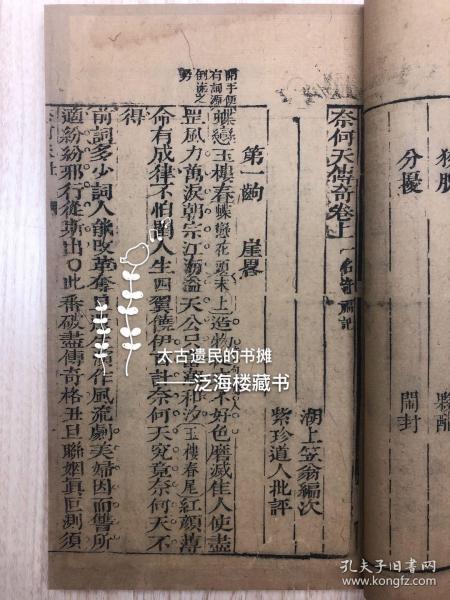 奈何天傳奇卷上 一名奇福記
湖上笠翁編次
紫珍道人批評
第一齣 崖畧
開手便
有詞源
倒流之
勢
蝶戀玉樓春蝶戀花頭末上造物
不好色磨滅佳人使盡
罡風力萬淚朝宗江
溢天公只
種汐玉樓春尾紅顔薄
命有成律不怕
人生四翼饒伊
計奈何天究竟奈何天不
得
前詞多少詞人能改革奪旦
作風流劇美婦因而讐所
適紛紛邪行從斯出〇此番破盡傳奇格丑旦聯姻眞叵測須
分擾
鬧封
太古遗民的书摊
——泛海楼藏书
孔夫子旧书网
www.kongfz.com